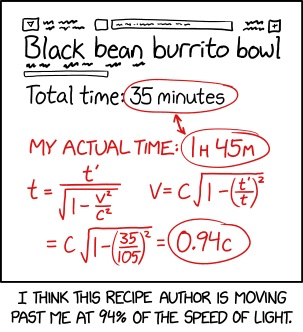 Black bean burrito bowl
Total time: 35 minutes
MY ACTUAL TIME: 1H 45M
t = t' / √(1 - v²/c²)   V = C √(1 - (t'/t)²)
= C √(1 - (35/105)²) = 0.94c
I THINK THIS RECIPE AUTHOR IS MOVING
PAST ME AT 94% OF THE SPEED OF LIGHT.